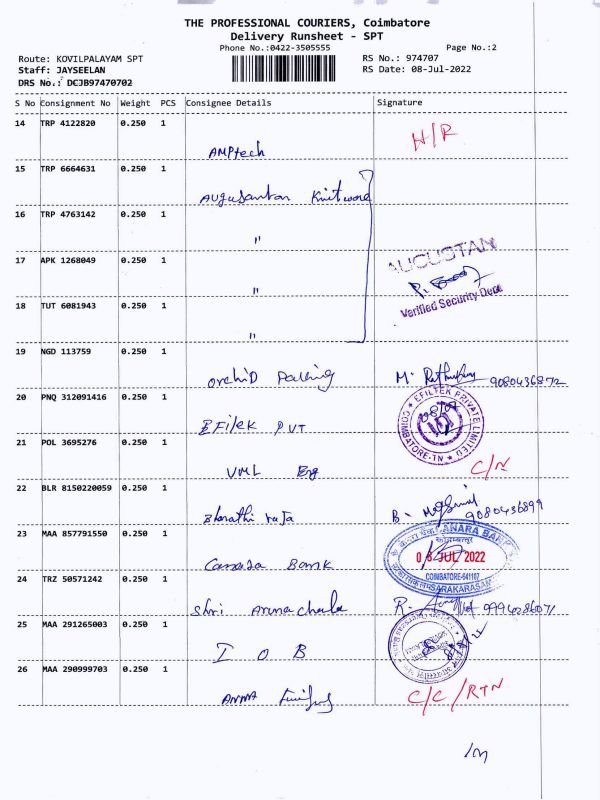 THE PROFESSIONAL COURIERS, Coimbatore
Delivery Runsheet - SPT
Phone No.:0422-3505555
Page No.:2
Route: KOVILPALAYAM SPT
RS No.: 974707
Staff: JAYSEELAN
RS Date: 08-Jul-2022
DRS No.: DCJB97470702
S No Consignment No Weight PCS Consignee Details Signature
14 TRP 4122820 0.250 1
AMPtech
N/R
15 TRP 6664631 0.250 1
Augusantan
16 TRP 4763142 0.250 1
"
17 APK 1268049 0.250 1
"
AUGUSTAN
Verified Security Dept
18 TUT 6081943 0.250 1
"
19 NGD 113759 0.250 1
Orchid Packing
M. 9080436872
20 PNQ 312091416 0.250 1
EFilek PVT
EFILTEK PRIVATE LIMITED
COIMBATORE-TN
21 POL 3695276 0.250 1
VML Eng
C/N
22 BLR 8150220059 0.250 1
Bharathi raja
B. 9080436899
23 MAA 857791550 0.250 1
Canara Bank
CANARA BANK
08 JUL 2022
COIMBATORE-641107
24 TRZ 50571242 0.250 1
Shri Arunachala
R. 9994086071
25 MAA 291265003 0.250 1
I O B
26 MAA 290999703 0.250 1
ANNA
C/C/RTN